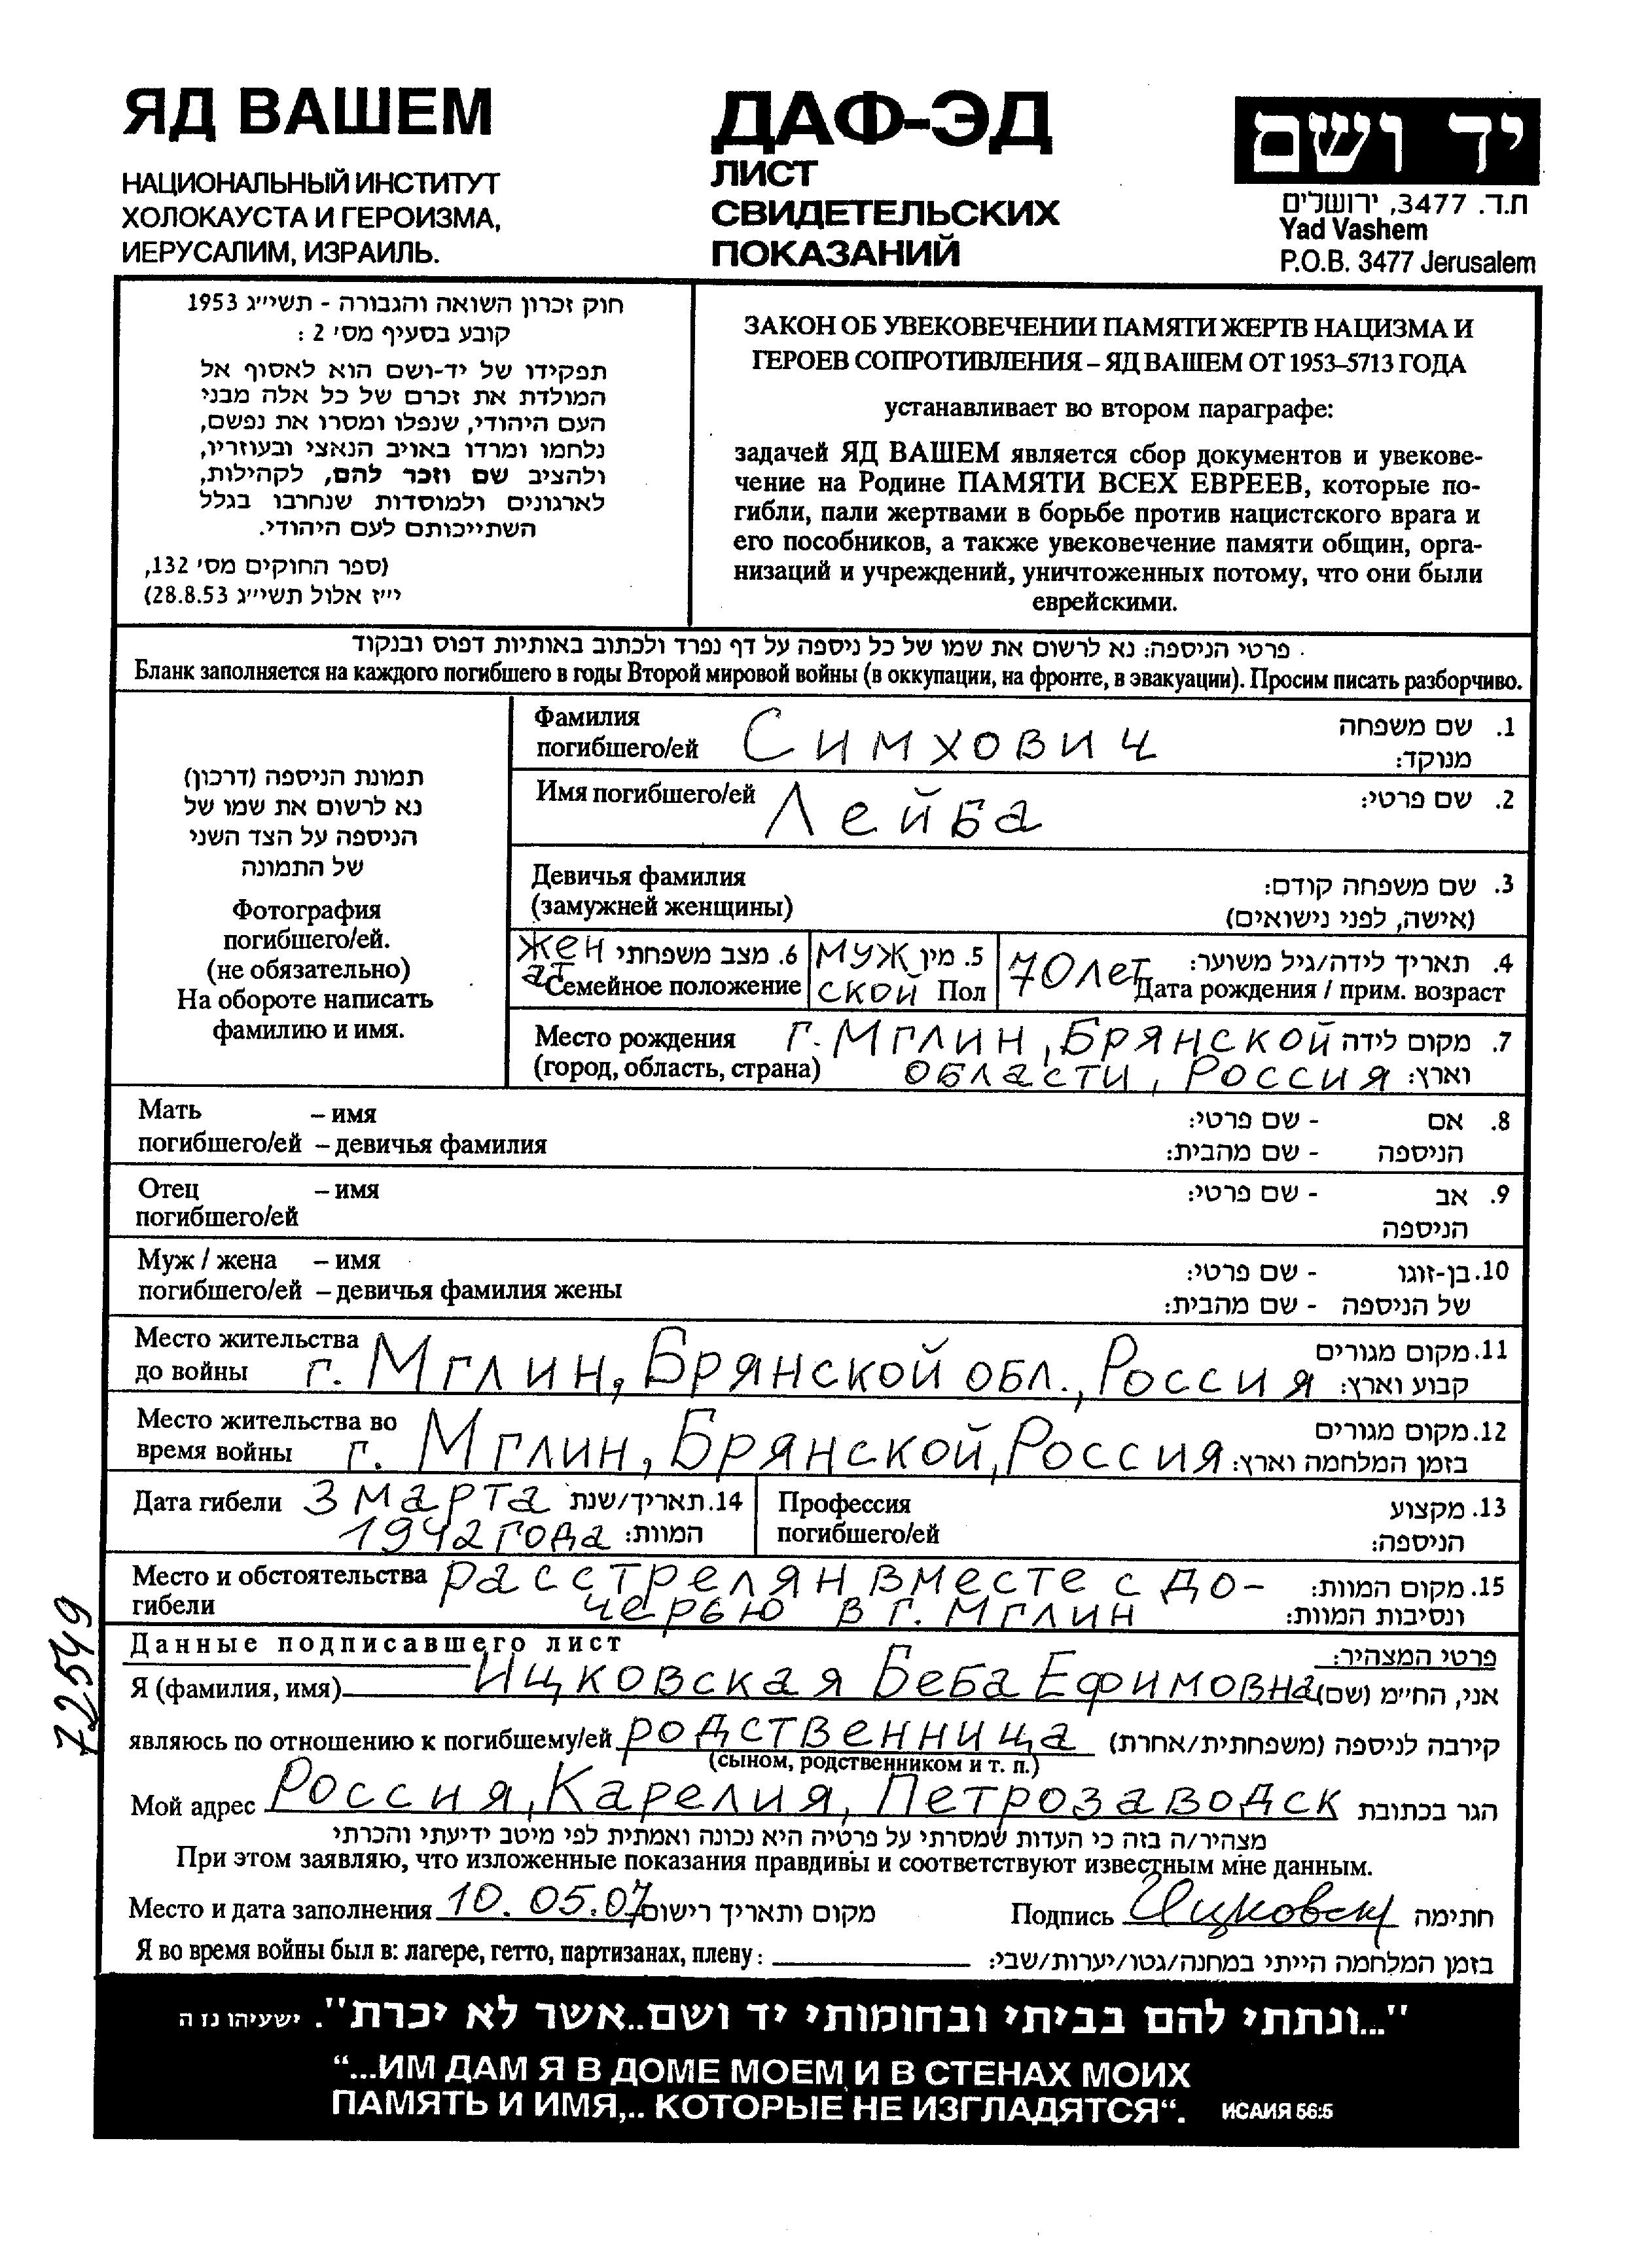 ЯД ВАШЕМ
НАЦИОНАЛЬНЫЙ ИНСТИТУТ
ХОЛОКАУСТА И ГЕРОИЗМА,
ИЕРУСАЛИМ, ИЗРАИЛЬ.
ДАФ-ЭД
ЛИСТ
СВИДЕТЕЛЬСКИХ
ПОКАЗАНИЙ
יד ושם
ת.ד. 3477, ירושלים
Yad Vashem
P.O.B. 3477 Jerusalem
חוק זכרון השואה והגבורה - תשי״ג 1953
קובע בסעיף מס׳ 2 :
תפקידו של יד-ושם הוא לאסוף אל
המולדת את זכרם של כל אלה מבני
העם היהודי, שנפלו ומסרו את נפשם,
נלחמו ומרדו באויב הנאצי ובעוזריו,
ולהציב שם וזכר להם, לקהילות,
לארגונים ולמוסדות שנחרבו בגלל
השתייכותם לעם היהודי.
(ספר החוקים מס׳ 132,
י״ז אלול תשי״ג 28.8.53)
ЗАКОН ОБ УВЕКОВЕЧЕНИИ ПАМЯТИ ЖЕРТВ НАЦИЗМА И
ГЕРОЕВ СОПРОТИВЛЕНИЯ – ЯД ВАШЕМ ОТ 1953–5713 ГОДА
устанавливает во втором параграфе:
задачей ЯД ВАШЕМ является сбор документов и увекове-
чение на Родине ПАМЯТИ ВСЕХ ЕВРЕЕВ, которые по-
гибли, пали жертвами в борьбе против нацистского врага и
его пособников, а также увековечение памяти общин, орга-
низаций и учреждений, уничтоженных потому, что они были
еврейскими.
פרטי הניספה: נא לרשום את שמו של כל ניספה על דף נפרד ולכתוב באותיות דפוס ובנקוד
Бланк заполняется на каждого погибшего в годы Второй мировой войны (в оккупации, на фронте, в эвакуации). Просим писать разборчиво.
תמונת הניספה (דרכון)
נא לרשום את שמו של
הניספה על הצד השני
של התמונה
Фотография
погибшего/ей.
(не обязательно)
На обороте написать
фамилию и имя.
Фамилия
погибшего/ей Симхович
1. שם משפחה
מנוקד:
Имя погибшего/ей Лейба 2. שם פרטי:
Девичья фамилия
(замужней женщины)
3. שם משפחה קודם:
(אישה, לפני נישואים)
жен 6. מצב משפחתי
ат Семейное положение
муж 5. מין
ской Пол
70 лет 4. תאריך לידה/גיל משוער:
Дата рождения / прим. возраст
Место рождения г. Мглин, Брянской 7. מקום לידה
(город, область, страна) области, Россия וארץ:
Мать – имя 8. אם - שם פרטי:
погибшего/ей – девичья фамилия הניספה - שם מהבית:
Отец – имя 9. אב - שם פרטי:
погибшего/ей הניספה
Муж / жена – имя 10. בן-זוגו - שם פרטי:
погибшего/ей – девичья фамилия жены של הניספה - שם מהבית:
Место жительства 11. מקום מגורים
до войны г. Мглин, Брянской обл., Россия קבוע וארץ:
Место жительства во 12. מקום מגורים
время войны г. Мглин, Брянской, Россия בזמן המלחמה וארץ:
Дата гибели 3 марта 14. תאריך/שנת
1942 года המוות:
Профессия 13. מקצוע
погибшего/ей הניספה:
Место и обстоятельства расстрелян вместе с до- 15. מקום המוות:
гибели черью в г. Мглин ונסיבות המוות:
72549
Данные подписавшего лист פרטי המצהיר:
Я (фамилия, имя) Ицковская Беба Ефимовна אני, החי״מ (שם)
являюсь по отношению к погибшему/ей родственница קירבה לניספה (משפחתית/אחרת)
(сыном, родственником и т. п.)
Мой адрес Россия, Карелия, Петрозаводск הגר בכתובת
מצהיר/ה בזה כי העדות שמסרתי על פרטיה היא נכונה ואמתית לפי מיטב ידיעתי והכרתי
При этом заявляю, что изложенные показания правдивы и соответствуют известным мне данным.
Место и дата заполнения 10.05.07 מקום ותאריך רישום Подпись Ицковск חתימה
Я во время войны был в: лагере, гетто, партизанах, плену: בזמן המלחמה הייתי במחנה/גטו/יערות/שבי:
"...ונתתי להם בביתי ובחומותי יד ושם..אשר לא יכרת". ישעיהו נז ה
“...ИМ ДАМ Я В ДОМЕ МОЕМ И В СТЕНАХ МОИХ
ПАМЯТЬ И ИМЯ,.. КОТОРЫЕ НЕ ИЗГЛАДЯТСЯ“. ИСАИЯ 56:5